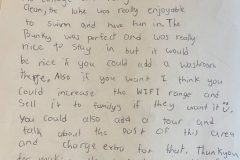 clean, the lake was really enjoyable
to swim and have fun in. The
Bunky was perfect and was really
nice to stay in but it would
be nice if you could add a washroom
there, Also if you want I think you
could increase the WIFI range and
Sell it to familys if they want it
you could also add a tour and
talk about the past of this area
and charge extra for that. Thankyou